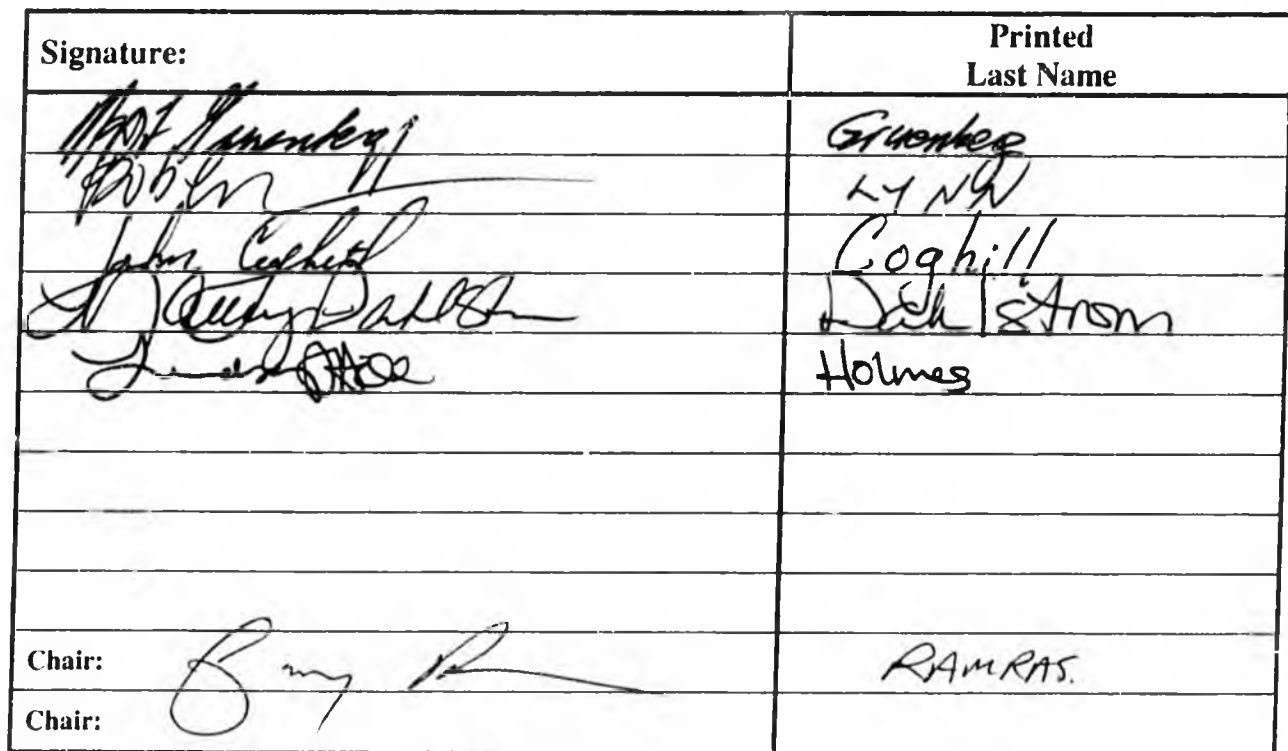 Signature: Printed
Last Name
Gruenberg
Bob Lynn LYNN
John Coghill Coghill
Nancy Dahlstrom Dahlstrom
Holmes
Chair: RAMRAS.
Chair: